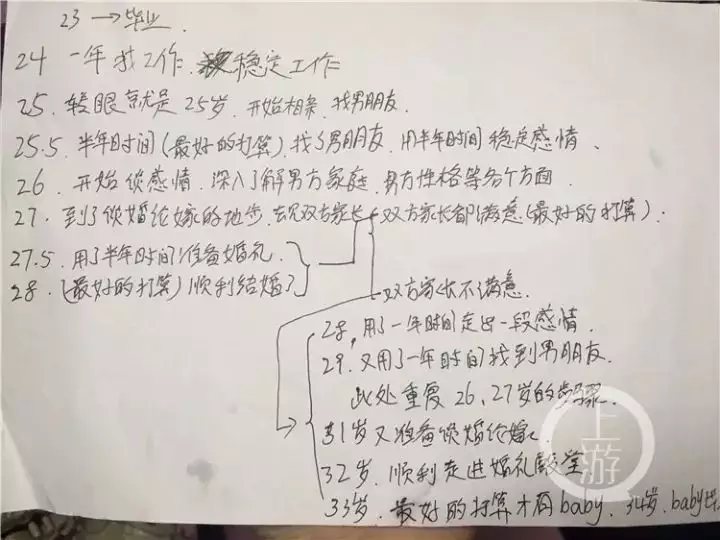 23 → 毕业.
24 一年找工作. 稳定工作
25. 转眼就是25岁. 开始相亲. 找男朋友.
25.5. 半年时间(最好的打算). 找了男朋友. 用半年时间稳定感情、
26. 开始谈感情. 深入了解男方家庭. 男方性格等各个方面.
27. 到了谈婚论嫁的地步. 去见双方家长 双方家长都满意(最好的打算).
27.5. 用了半年时间准备婚礼.
28. (最好的打算)顺利结婚了
双方家长不满意.
28, 用了一年时间走出一段感情.
29. 又用了一年时间找到男朋友.
此处重复26、27岁的步骤.
31岁又准备谈婚论嫁.
32岁. 顺利走进婚礼殿堂.
33岁. 最好的打算才有baby、34岁. baby
上游